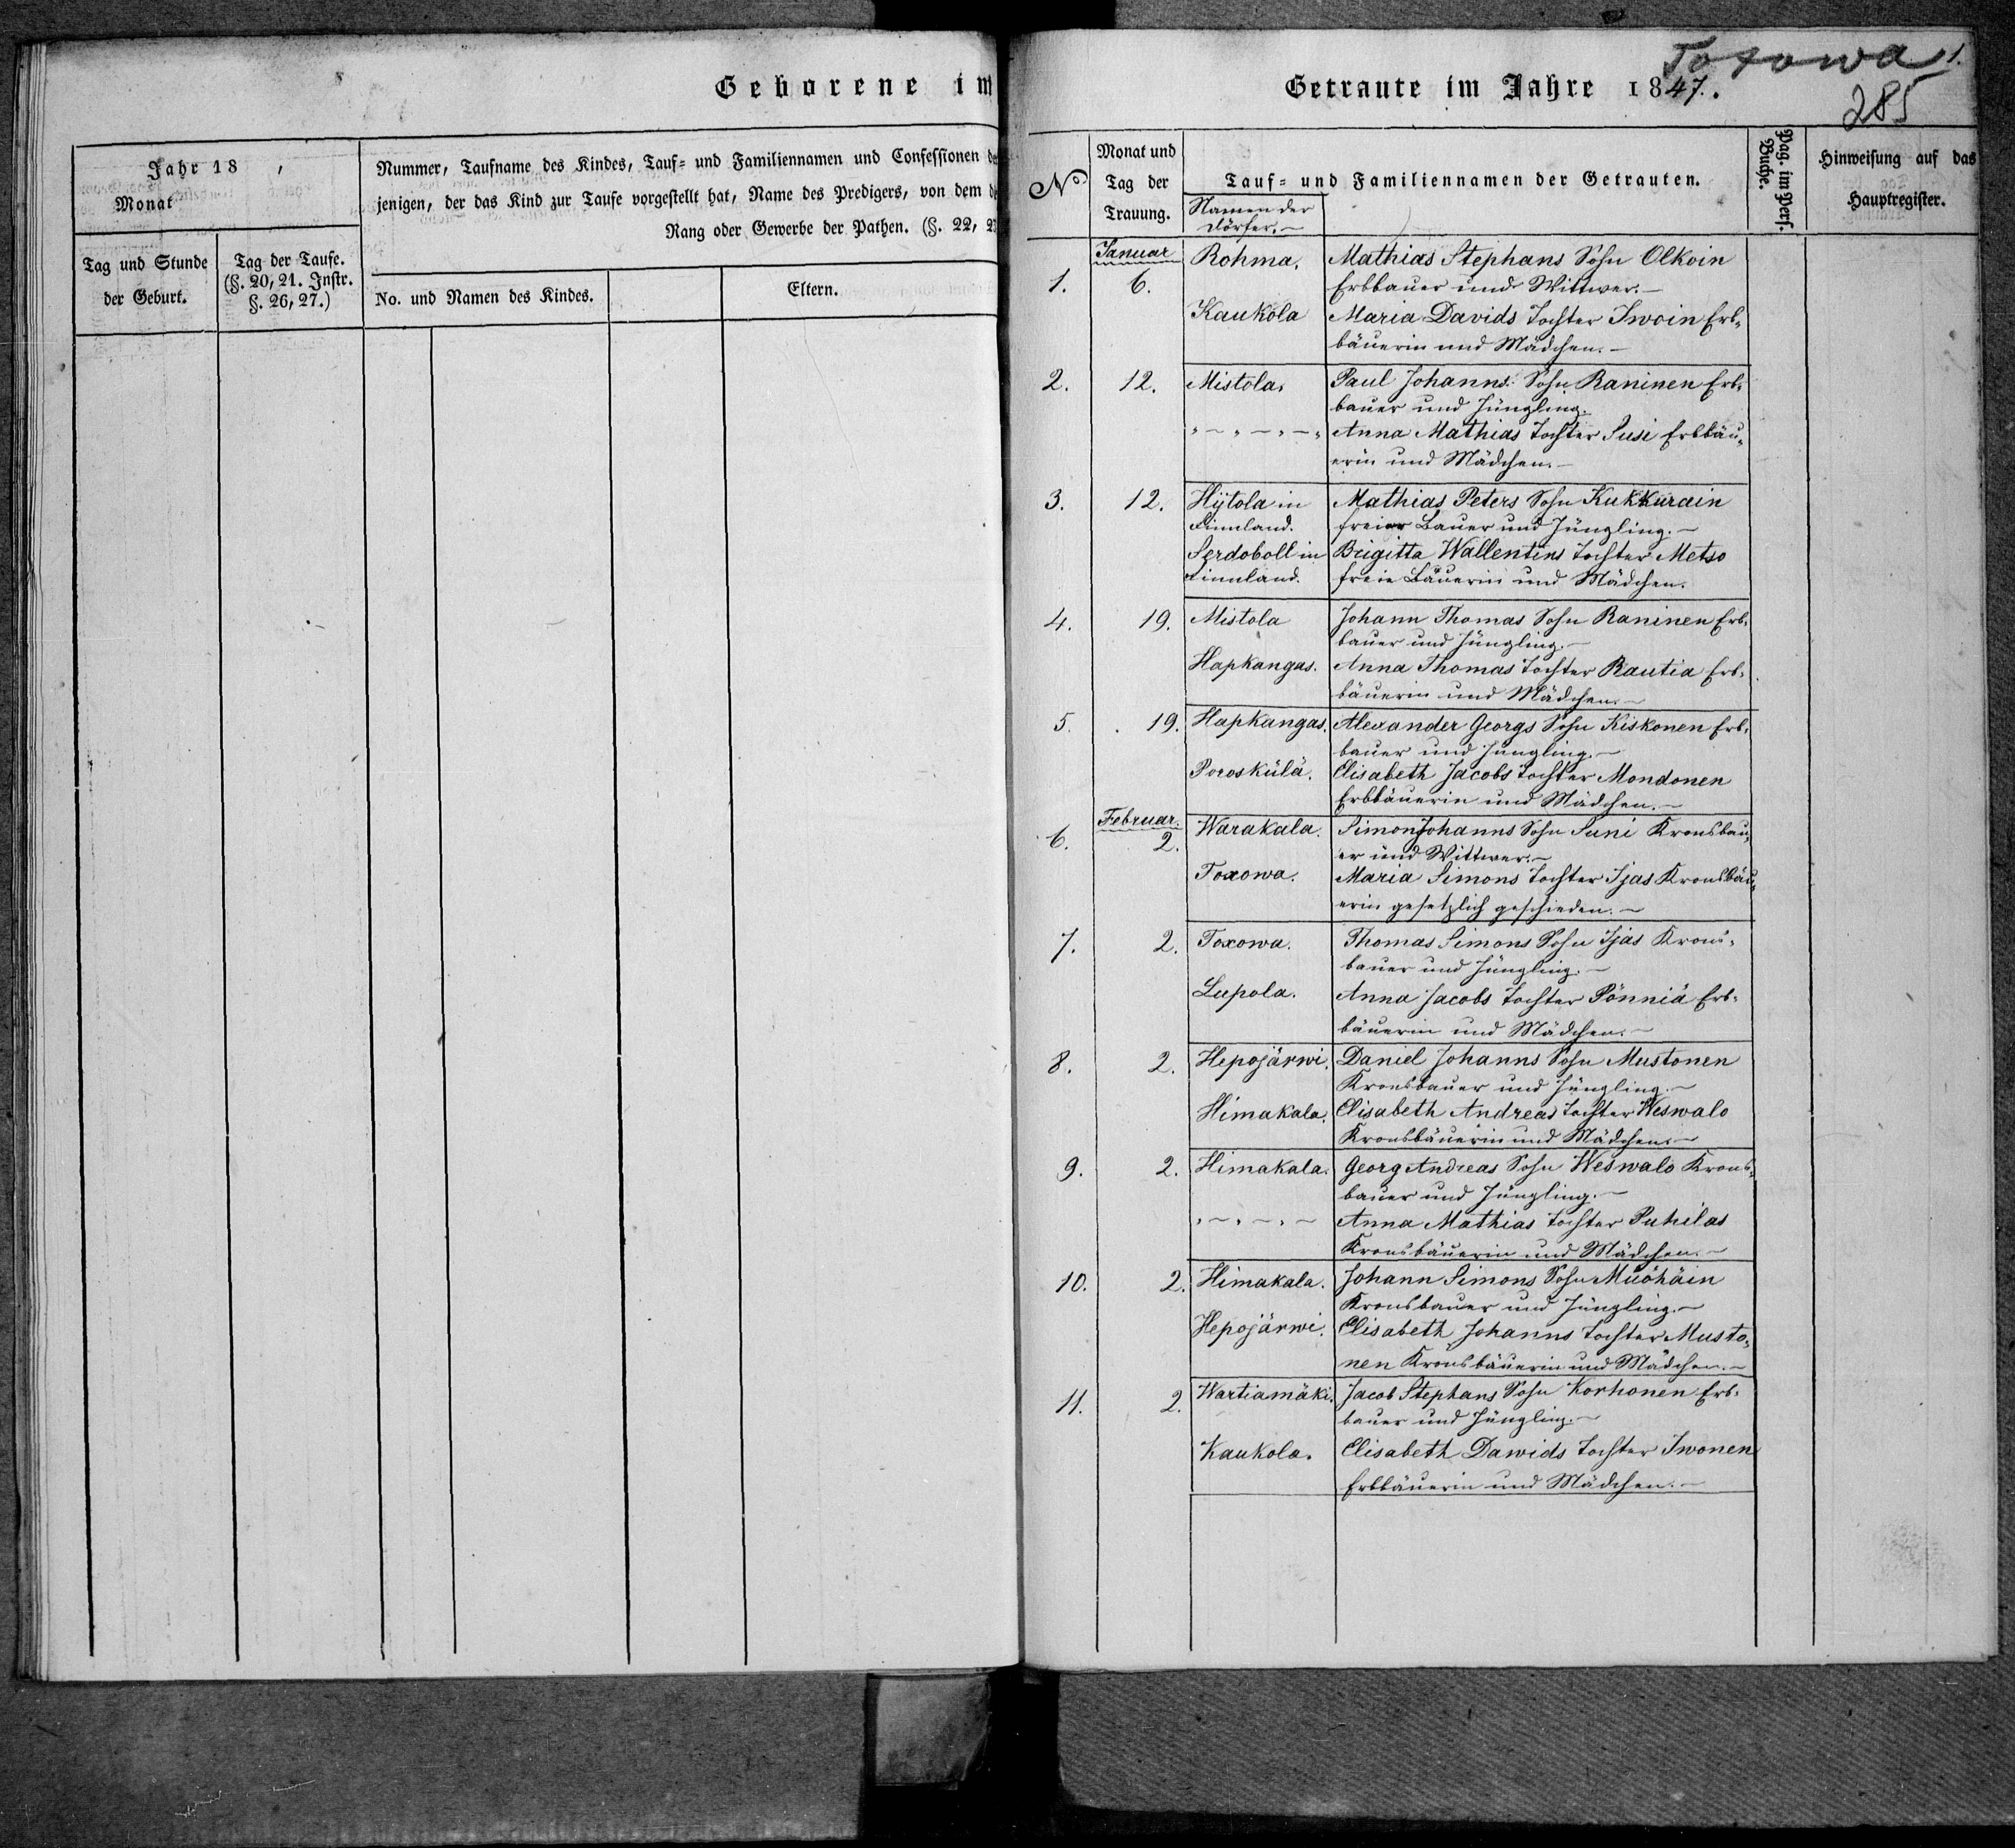 Geborene im
Jahr 18 ,
Monat
Nummer, Taufname des Kindes, Tauf- und Familiennamen und Confessionen de
jenigen, der das Kind zur Taufe vorgestellt hat, Name des Predigers, von dem d
Rang oder Gewerbe der Pathen. (§. 22, 2
Tag und Stunde
der Geburt.
Tag der Taufe.
(§. 20, 21. Instr.
§. 26, 27.)
No. und Namen des Kindes.
Eltern.
Toxowa 1.
285
Getraute im Jahre 1847.
No
Monat und
Tag der
Trauung.
Tauf- und Familiennamen der Getrauten.
Namen der
Dörfer.
Pag. im Pers.
Buche.
Hinweisung auf das
Hauptregister.
Januar Rohma. Mathias Stephans Sohn Olkoin
1. 6. Erbbauer und Wittwer.
Kaukola Maria Davids Tochter Iwoin Erb-
bäuerin und Mädchen.
2. 12. Mistola. Paul Johanns Sohn Raninen Erb-
bauer und Jüngling.
Anna Mathias Tochter Susi Erbbäu-
erin und Mädchen.
3. 12. Hÿtola in Mathias Peters Sohn Kukkurain
Finnland. freier Bauer und Jüngling.
Serdoboll in Brigitta Wallentins Tochter Metso
Finnland. freie Bäuerin und Mädchen.
4. 19. Mistola Johann Thomas Sohn Raninen Erb-
bauer und Jüngling.
Hapkangas. Anna Thomas Tochter Rautia Erb-
bäuerin und Mädchen.
5. 19. Hapkangas. Alexander Georgs Sohn Kiskonen Erb-
bauer und Jüngling.
Poroskülä. Elisabeth Jacobs Tochter Mondonen
Erbbäuerin und Mädchen.
Februar.
6. 2. Warakala. Simon Johanns Sohn Suni Kronsbau-
er und Wittwer.
Toxowa. Maria Simons Tochter Ijas Kronsbäu-
erin gesetzlich geschieden.
7. 2. Toxowa. Thomas Simons Sohn Ijas Krons-
bauer und Jüngling.
Lupola. Anna Jacobs Tochter Pönniä Erb-
bäuerin und Mädchen.
8. 2. Hepojärwi. Daniel Johanns Sohn Mustonen
Kronsbauer und Jüngling.
Himakala. Elisabeth Andreas Tochter Weswalo
Kronsbäuerin und Mädchen.
9. 2. Himakala. Georg Andreas Sohn Weswalo Krons-
bauer und Jüngling.
Anna Mathias Tochter Puhilas
Kronsbäuerin und Mädchen.
10. 2. Himakala. Johann Simons Sohn Muöhäin
Kronsbauer und Jüngling.
Hepojärwi. Elisabeth Johanns Tochter Musto-
nen Kronsbäuerin und Mädchen.
11. 2. Wartiamäki. Jacob Stephans Sohn Korhonen Erb-
bauer und Jüngling.
Kaukola. Elisabeth Dawids Tochter Iwonen
Erbbäuerin und Mädchen.